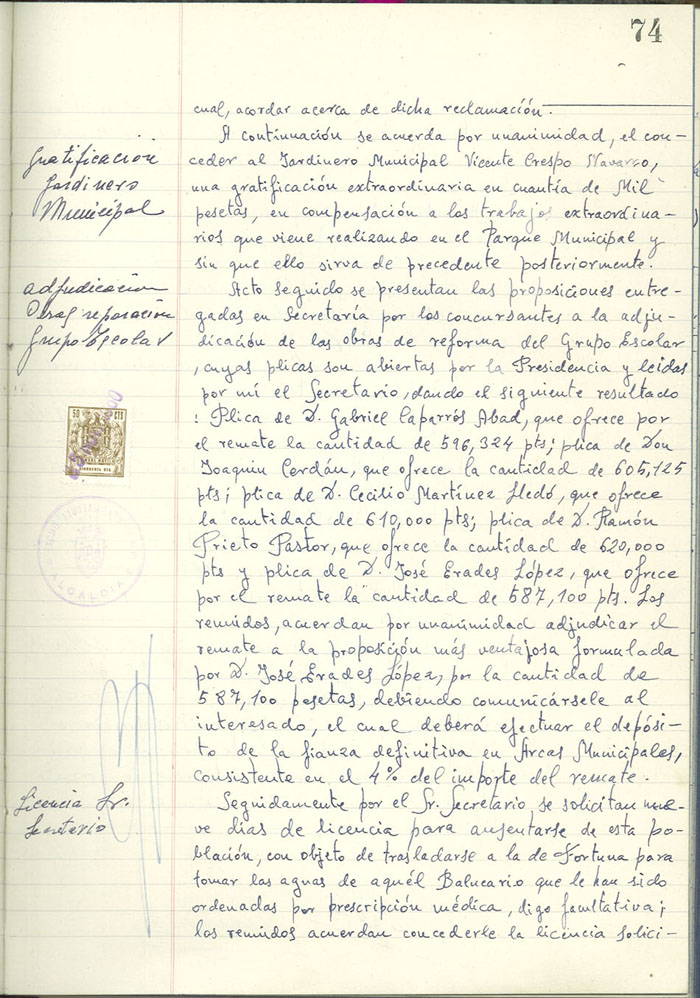 74
cual, acordar acerca de dicha reclamación.
A continuación se acuerda por unanimidad, el con-
ceder al Jardinero Municipal Vicente Crespo Navarro,
una gratificación extraordinaria en cuantía de Mil
pesetas, en compensación a los trabajos extraordina-
rios que viene realizando en el Parque Municipal y
sin que ello sirva de precedente posteriormente.
Gratificación
Jardinero
Municipal
Acto seguido se presentan las proposiciones entre-
gadas en Secretaría por los concursantes a la adju-
dicación de las obras de reforma del Grupo Escolar
, cuyas plicas son abiertas por la Presidencia y leidas
por mí el Secretario, dando el siguiente resultado
: Plica de D. Gabriel Caparrós Abad, que ofrece por
el remate la cantidad de 596,324 pts; plica de Don
Joaquin Cerdán, que ofrece la cantidad de 605,125
pts; plica de D. Cecilio Martínez Lledó, que ofrece
la cantidad de 610,000 pts; plica de D. Ramón
Prieto Pastor, que ofrece la cantidad de 620,000
pts y plica de D. José Erades López, que ofrece
por el remate la cantidad de 587,100 pts. Los
reunidos, acuerdan por unanimidad adjudicar el
remate a la proposición más ventajosa formulada
por D. José Erades López, por la cantidad de
587,100 pesetas, debiendo comunicársele al
interesado, el cual deberá efectuar el depósi-
to de la fianza definitiva en Arcas Municipales,
consistente en el 4% del importe del remate.
adjudicación
Obras reparación
Grupo Escolar
50 CTS
ALCALDIA
Seguidamente por el Sr. Secretario, se solicitan nue-
ve dias de licencia para ausentarse de esta po-
blación, con objeto de trasladarse a la de Fortuna para
tomar las aguas de aquél Balneario que le han sido
ordenadas por prescripción médica, digo facultativa;
los reunidos acuerdan concederle la licencia solici-
Licencia Sr.
Secretario